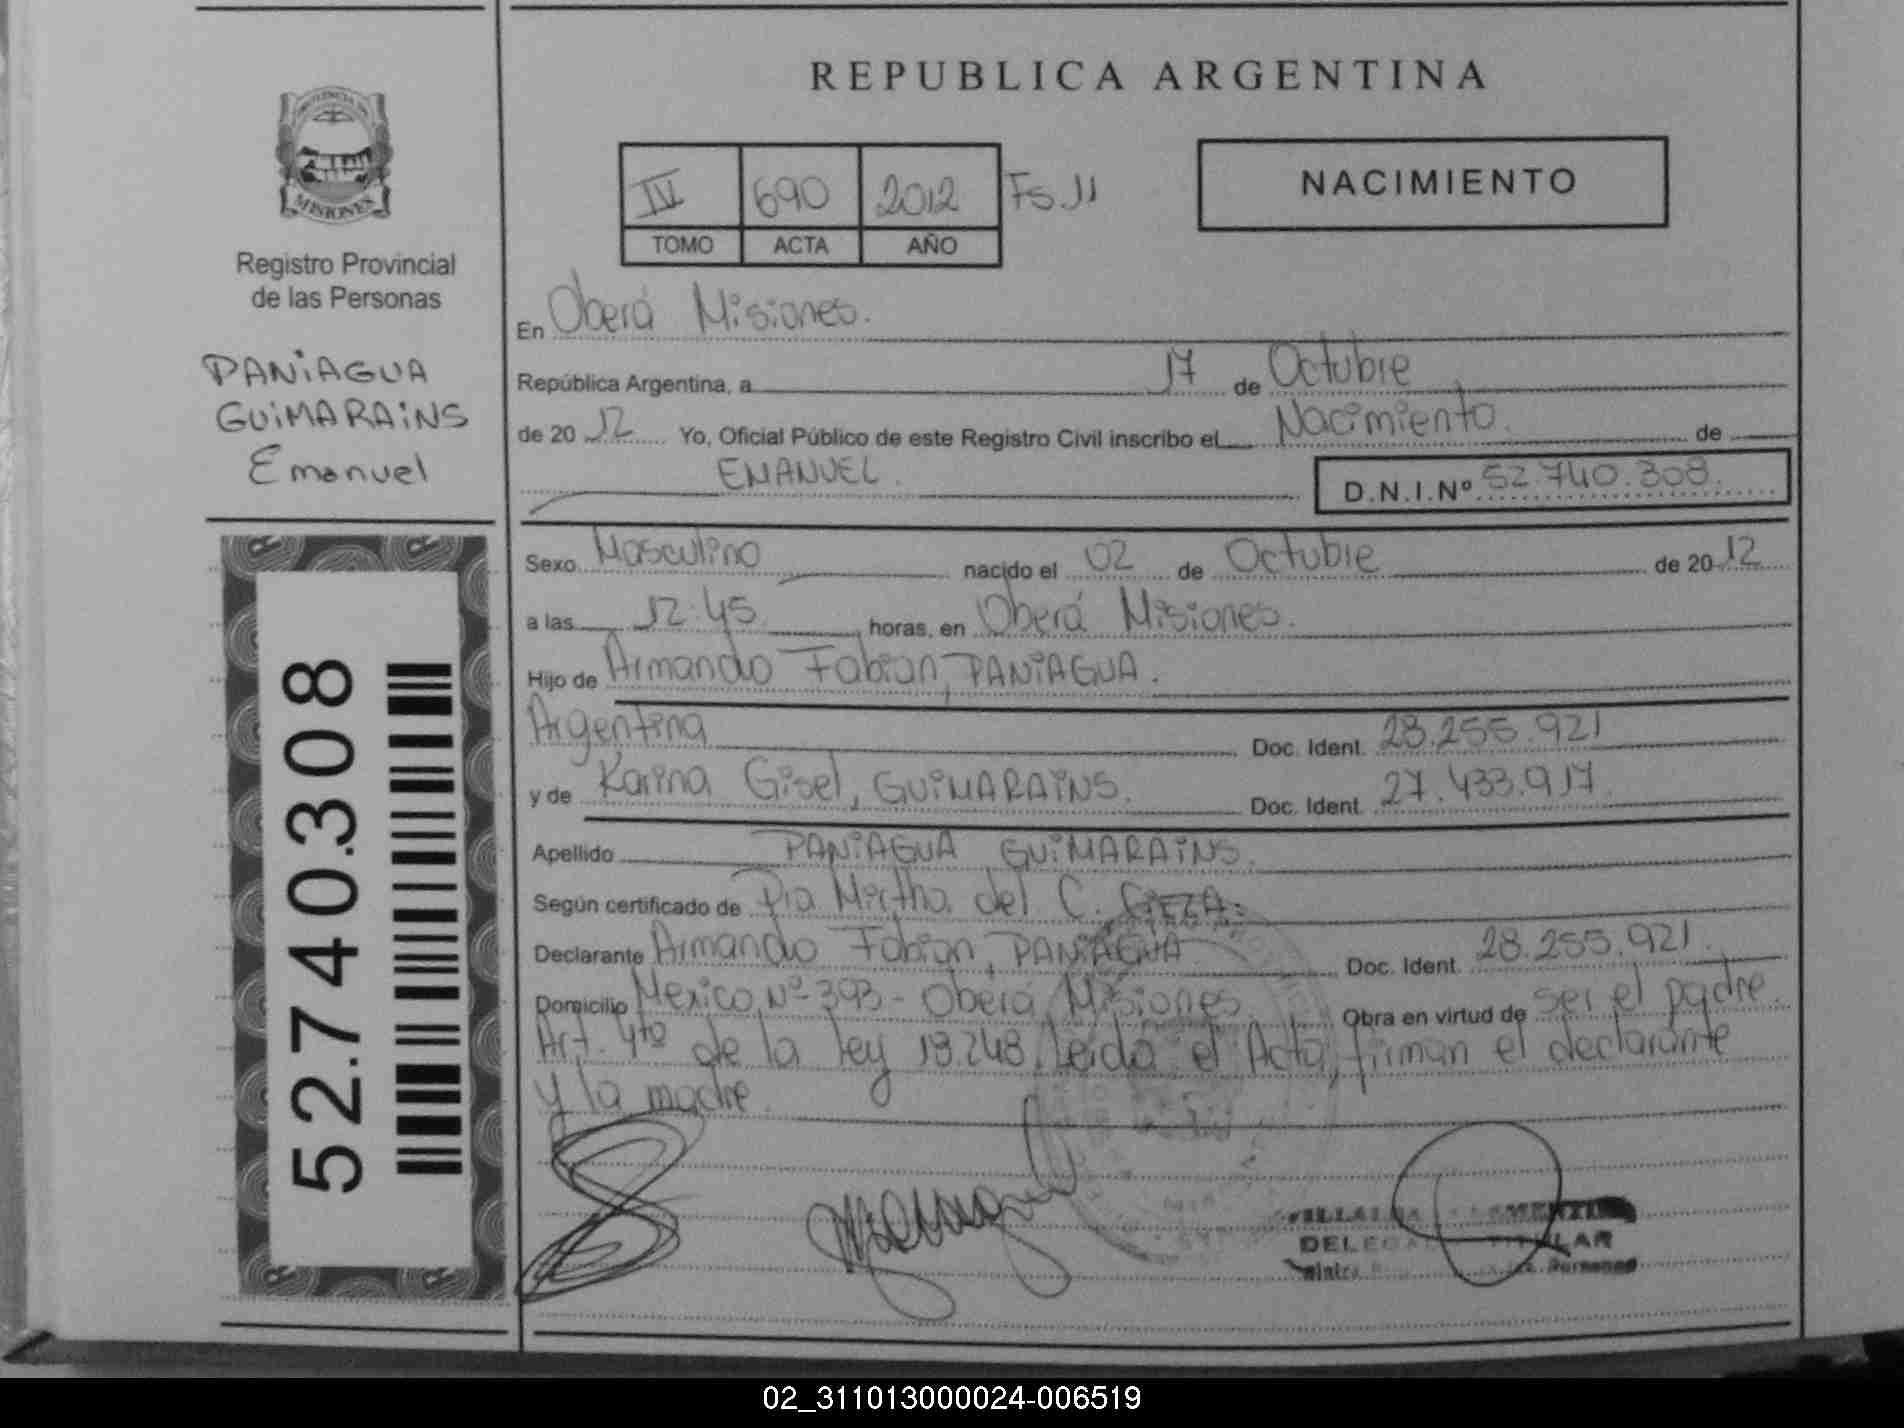 REPUBLICA ARGENTINA
PROVINCIA DE
MISIONES
Registro Provincial
de las Personas
PANIAGUA
GUIMARAINS
Emanuel
52.740.308
IV 690 2012 Fs. 11
TOMO ACTA AÑO
NACIMIENTO
En Oberá Misiones.
República Argentina, a 17 de Octubre
de 20 12 Yo, Oficial Público de este Registro Civil inscribo el Nacimiento. de
EMANUEL. D.N.I.Nº 52.740.308.
Sexo Masculino nacido el 02 de Octubre de 20 12
a las 12:45 horas, en Oberá Misiones.
Hijo de Armando Fabian, PANIAGUA.
Argentina Doc. Ident. 28.255.921
y de Karina Gisel, GUIMARAINS. Doc. Ident. 27.433.917.
Apellido PANIAGUA GUIMARAINS.
Según certificado de Dra Mirtha del C.
Declarante Armando Fabian, PANIAGUA Doc. Ident. 28.255.921.
Domicilio Mexico Nº 393 - Oberá Misiones Obra en virtud de ser el padre.
Art. 4to de la ley 18.248. Leida el Acta, firman el declarante
y la madre.
DELEGAD TITULAR
02_311013000024-006519